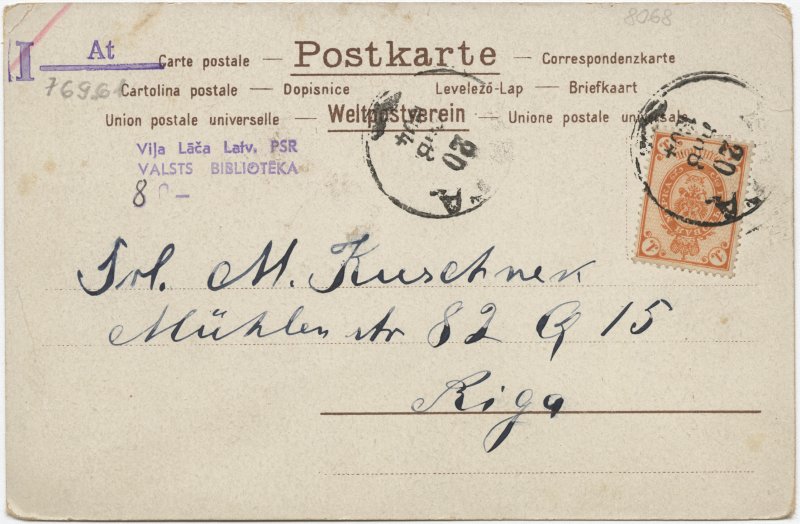 8068
At
Carte postale — Postkarte — Correspondenzkarte
76961
Cartolina postale — Dopisnice Levelező-Lap — Briefkaart
Union postale universelle — Weltpostverein — Unione postale universale
Viļa Lāča Latv. PSR
VALSTS BIBLIOTĒKA
8
20
1904
20
1904
Frl. M. Kuschner
Mühlen str 82 Q 15
Riga